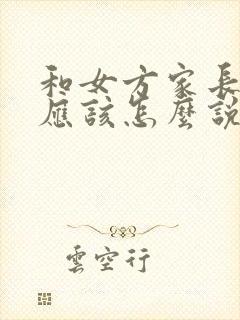 和女方家長
應該怎麼說
雲空行